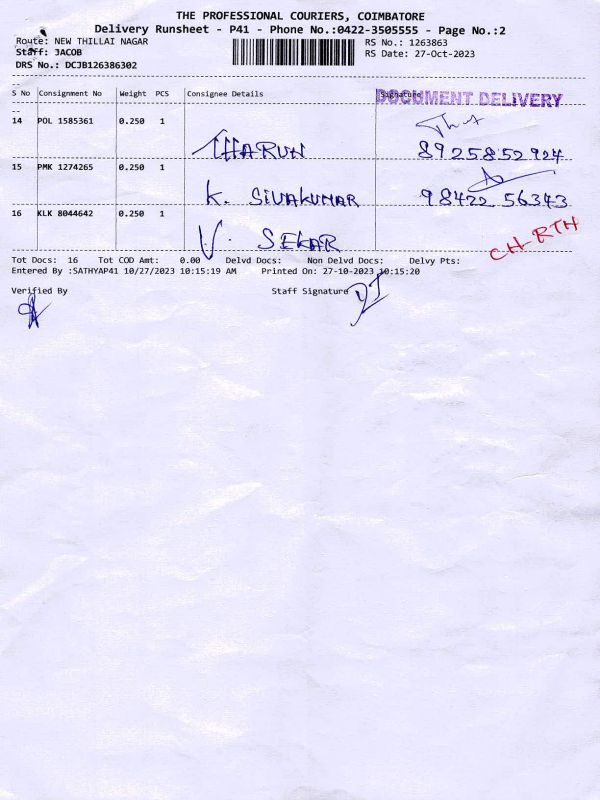 THE PROFESSIONAL COURIERS, COIMBATORE
Delivery Runsheet - P41 - Phone No.:0422-3505555 - Page No.:2
Route: NEW THILLAI NAGAR RS No.: 1263863
Staff: JACOB RS Date: 27-Oct-2023
DRS No.: DCJB126386302
S No Consignment No Weight PCS Consignee Details Signature
DOCUMENT DELIVERY
14 POL 1585361 0.250 1
THARUN 8925852924
15 PMK 1274265 0.250 1
K. SIVAKUMAR 98422 56343
16 KLK 8044642 0.250 1
V. SEKAR CH-RTH
Tot Docs: 16 Tot COD Amt: 0.00 Delvd Docs: Non Delvd Docs: Delvy Pts:
Entered By :SATHYAP41 10/27/2023 10:15:19 AM Printed On: 27-10-2023 10:15:20
Verified By Staff Signature